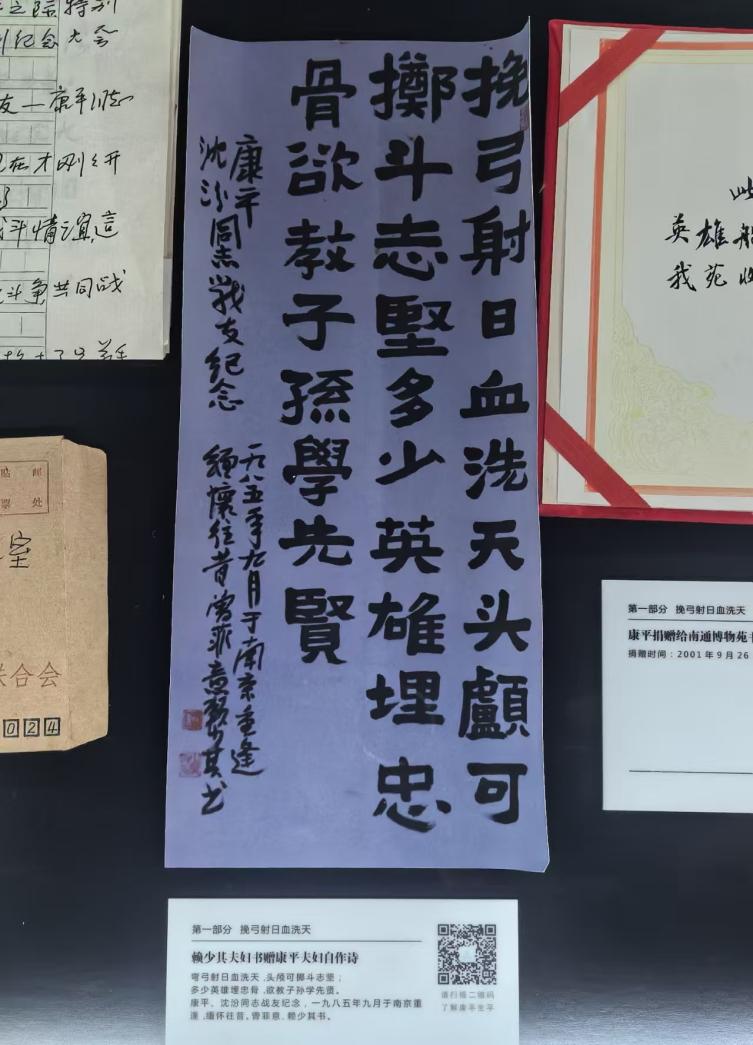 挽弓射日血洗天头顱可
擲斗志堅多少英雄埋忠
骨欲教子孫學先賢
康平
沈汾同志战友纪念
一九八五年九月于南京重逢
缅懷往昔曾菲意赖少其书
特别
纪念大会
友—康平同志
在才刚刚开
斗情谊這
斗争共同战
邮
票处
室
联合会
024
英雄
我苑收
第一部分 挽弓射日血洗天
赖少其夫妇书赠康平夫妇自作诗
弯弓射日血洗天,头颅可掷斗志坚;
多少英雄埋忠骨,欲教子孙学先贤。
康平、沈汾同志战友纪念,一九八五年九月于南京重
逢,缅怀往昔。曾菲意、赖少其书。
请扫描二维码
了解康平生平
第一部分 挽弓射日血洗天
康平捐赠给南通博物苑
捐赠时间:2001年9月26